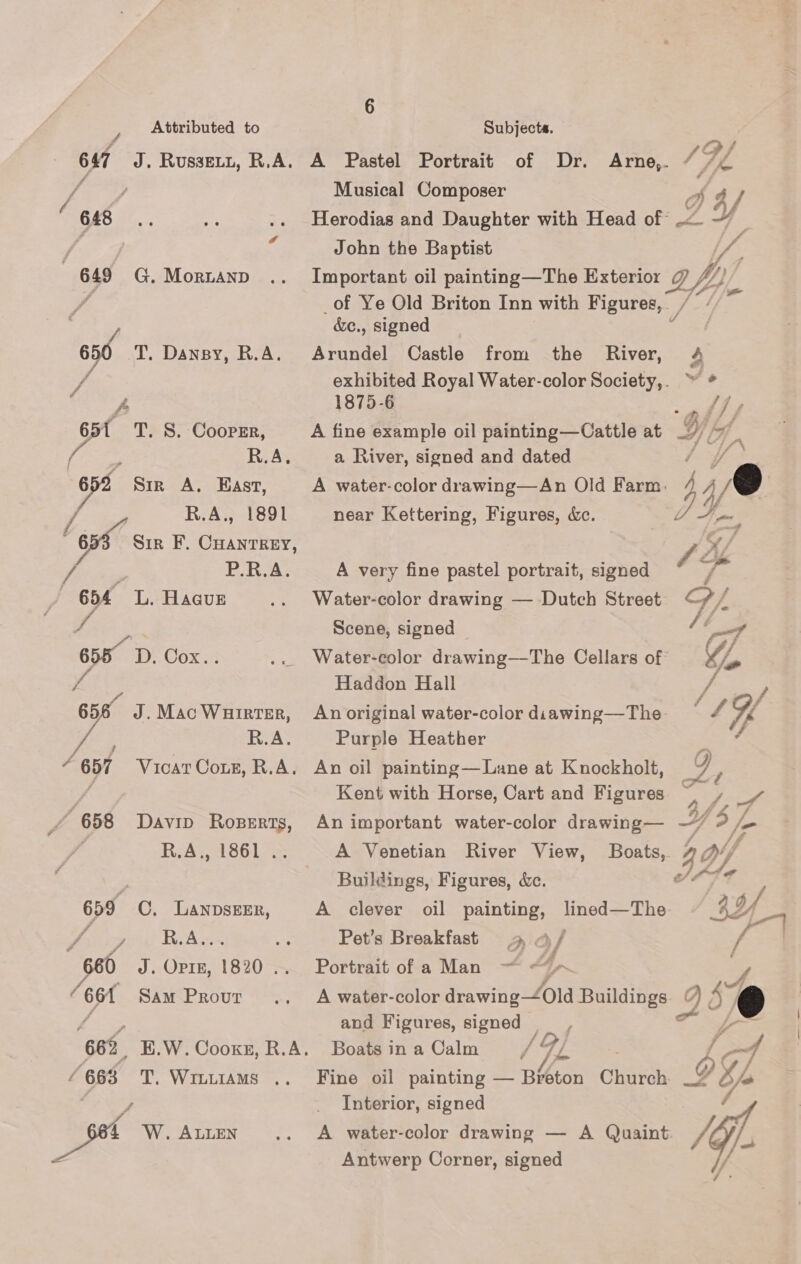 6
Attributed to Subjects.
647 J. Russell, R.A. A Pastel Portrait of Dr. Arne,
Musical Composer
648 .. .. .. Herodias and Daughter with Head of
John the Baptist
649 G. Morland .. Important oil painting—The Exterior
of Ye Old Briton Inn with Figures,
&c., signed
650 T. Danby, R.A. Arundel Castle from the River,
exhibited Royal Water-color Society,
1875-6
651 T. S. Cooper, A fine example oil painting—Cattle at
R.A. a River, signed and dated
652 Sir A. East, A water-color drawing—An Old Farm
R.A., 1891 near Kettering, Figures, &c.
653 Sir F. Chantrey,
P.R.A. A very fine pastel portrait, signed
654 L. Hague .. Water-color drawing — Dutch Street
Scene, signed
655 D. Cox.. .. Water-color drawing—The Cellars of
Haddon Hall
656 J. Mac Whirter, An original water-color diawing—The
R.A. Purple Heather
657 Vicat Cole, R.A. An oil painting—Lane at Knockholt,
Kent with Horse, Cart and Figures
658 David Roberts, An important water-color drawing—
R.A., 1861 .. A Venetian River View, Boats,
Buildings, Figures, &c.
659 C. Landseer, A clever oil painting, lined—The
R.A... .. Pet's Breakfast
660 J. Opie, 1820 .. Portrait of a Man
661 Sam Prout .. A water-color drawing—Old Buildings
and Figures, signed
662 E.W. Cooke, R.A. Boats in a Calm
663 T. Williams .. Fine oil painting — Breton Church
Interior, signed
664 W. Allen .. A water-color drawing — A Quaint
Antwerp Corner, signed